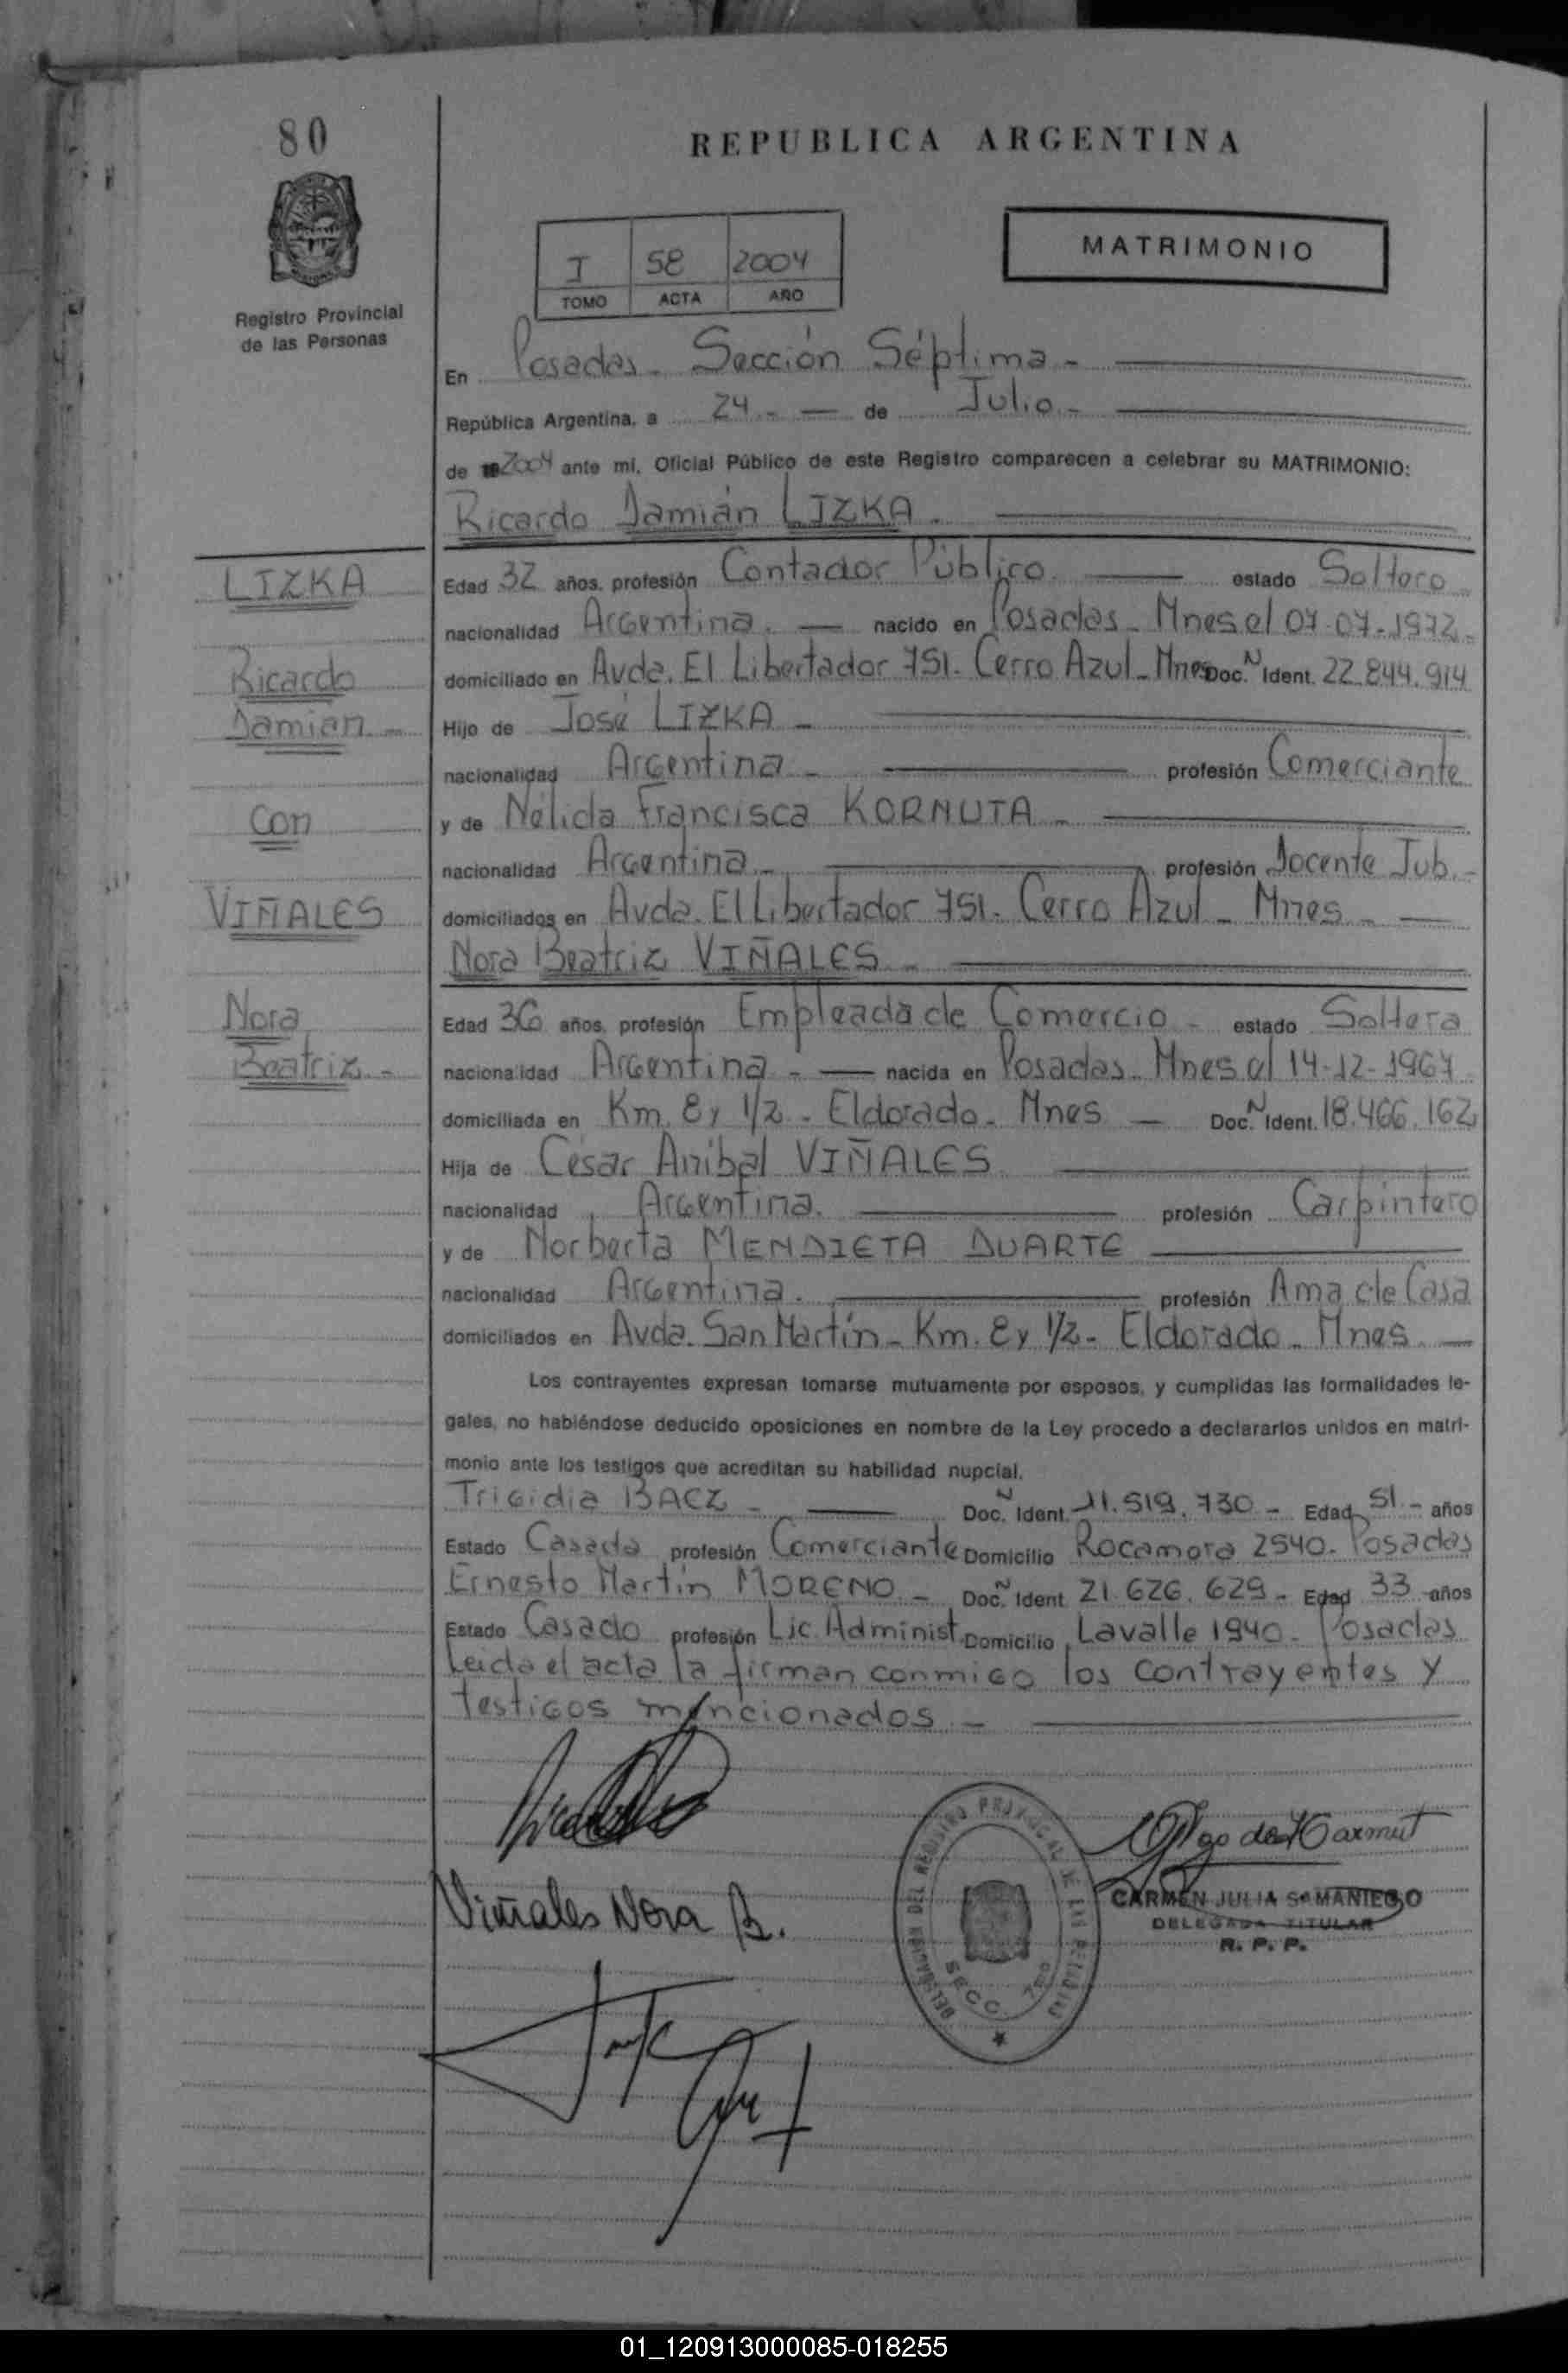 80
REPUBLICA ARGENTINA
Registro Provincial
de las Personas
I 58 2004
TOMO ACTA AÑO
MATRIMONIO
En Posadas - Sección Séptima -
República Argentina, a 24 - — de Julio -
de 2004 ante mi, Oficial Público de este Registro comparecen a celebrar su MATRIMONIO:
Ricardo Damián LIZKA.
LIZKA
Ricardo
Damian -
con
VIÑALES
Nora
Beatriz -
Edad 32 años, profesión Contador Público. — estado Soltero
nacionalidad Argentina. — nacido en Posadas - Mnes el 07-07-1972-
domiciliado en Avda. El Libertador 751- Cerro Azul - Mnes Doc. N Ident. 22.844.914
Hijo de José LIZKA -
nacionalidad Argentina - profesión Comerciante
y de Nélida Francisca KORNUTA -
nacionalidad Argentina - profesión Docente Jub. -
domiciliados en Avda. El Libertador 751- Cerro Azul - Mnes -
Nora Beatriz VIÑALES -
Edad 36 años, profesión Empleada de Comercio - estado Soltera
nacionalidad Argentina - — nacida en Posadas - Mnes el 14-12-1967
domiciliada en Km. 8 y 1/2 - Eldorado - Mnes — Doc. N Ident. 18.466.162
Hija de César Anibal VIÑALES
nacionalidad Argentina. profesión Carpintero
y de Norberta MENDIETA DUARTE
nacionalidad Argentina. profesión Ama de Casa
domiciliados en Avda. San Martín - Km. 8 y 1/2 - Eldorado - Mnes. —
Los contrayentes expresan tomarse mutuamente por esposos, y cumplidas las formalidades le-
gales, no habiéndose deducido oposiciones en nombre de la Ley procedo a declararlos unidos en matri-
monio ante los testigos que acreditan su habilidad nupcial.
Trigidia BACZ - — Doc. N Ident. 11.519.730 - Edad 51 - años
Estado Casada profesión Comerciante Domicilio Rocamora 2540- Posadas
Ernesto Martín MORENO - Doc. N Ident. 21.626.629 - Edad 33 años
Estado Casado profesión Lic. Administ. Domicilio Lavalle 1940- Posadas
Leida el acta la firman conmigo los contrayentes y
testigos mencionados -
Viñales Nora B.
DELEGACION DEL REGISTRO PROVINCIAL DE LAS PERSONAS
SECC. 7ma
CARMEN JULIA SAMANIEGO
DELEGADA TITULAR
R. P. P.
01_120913000085-018255